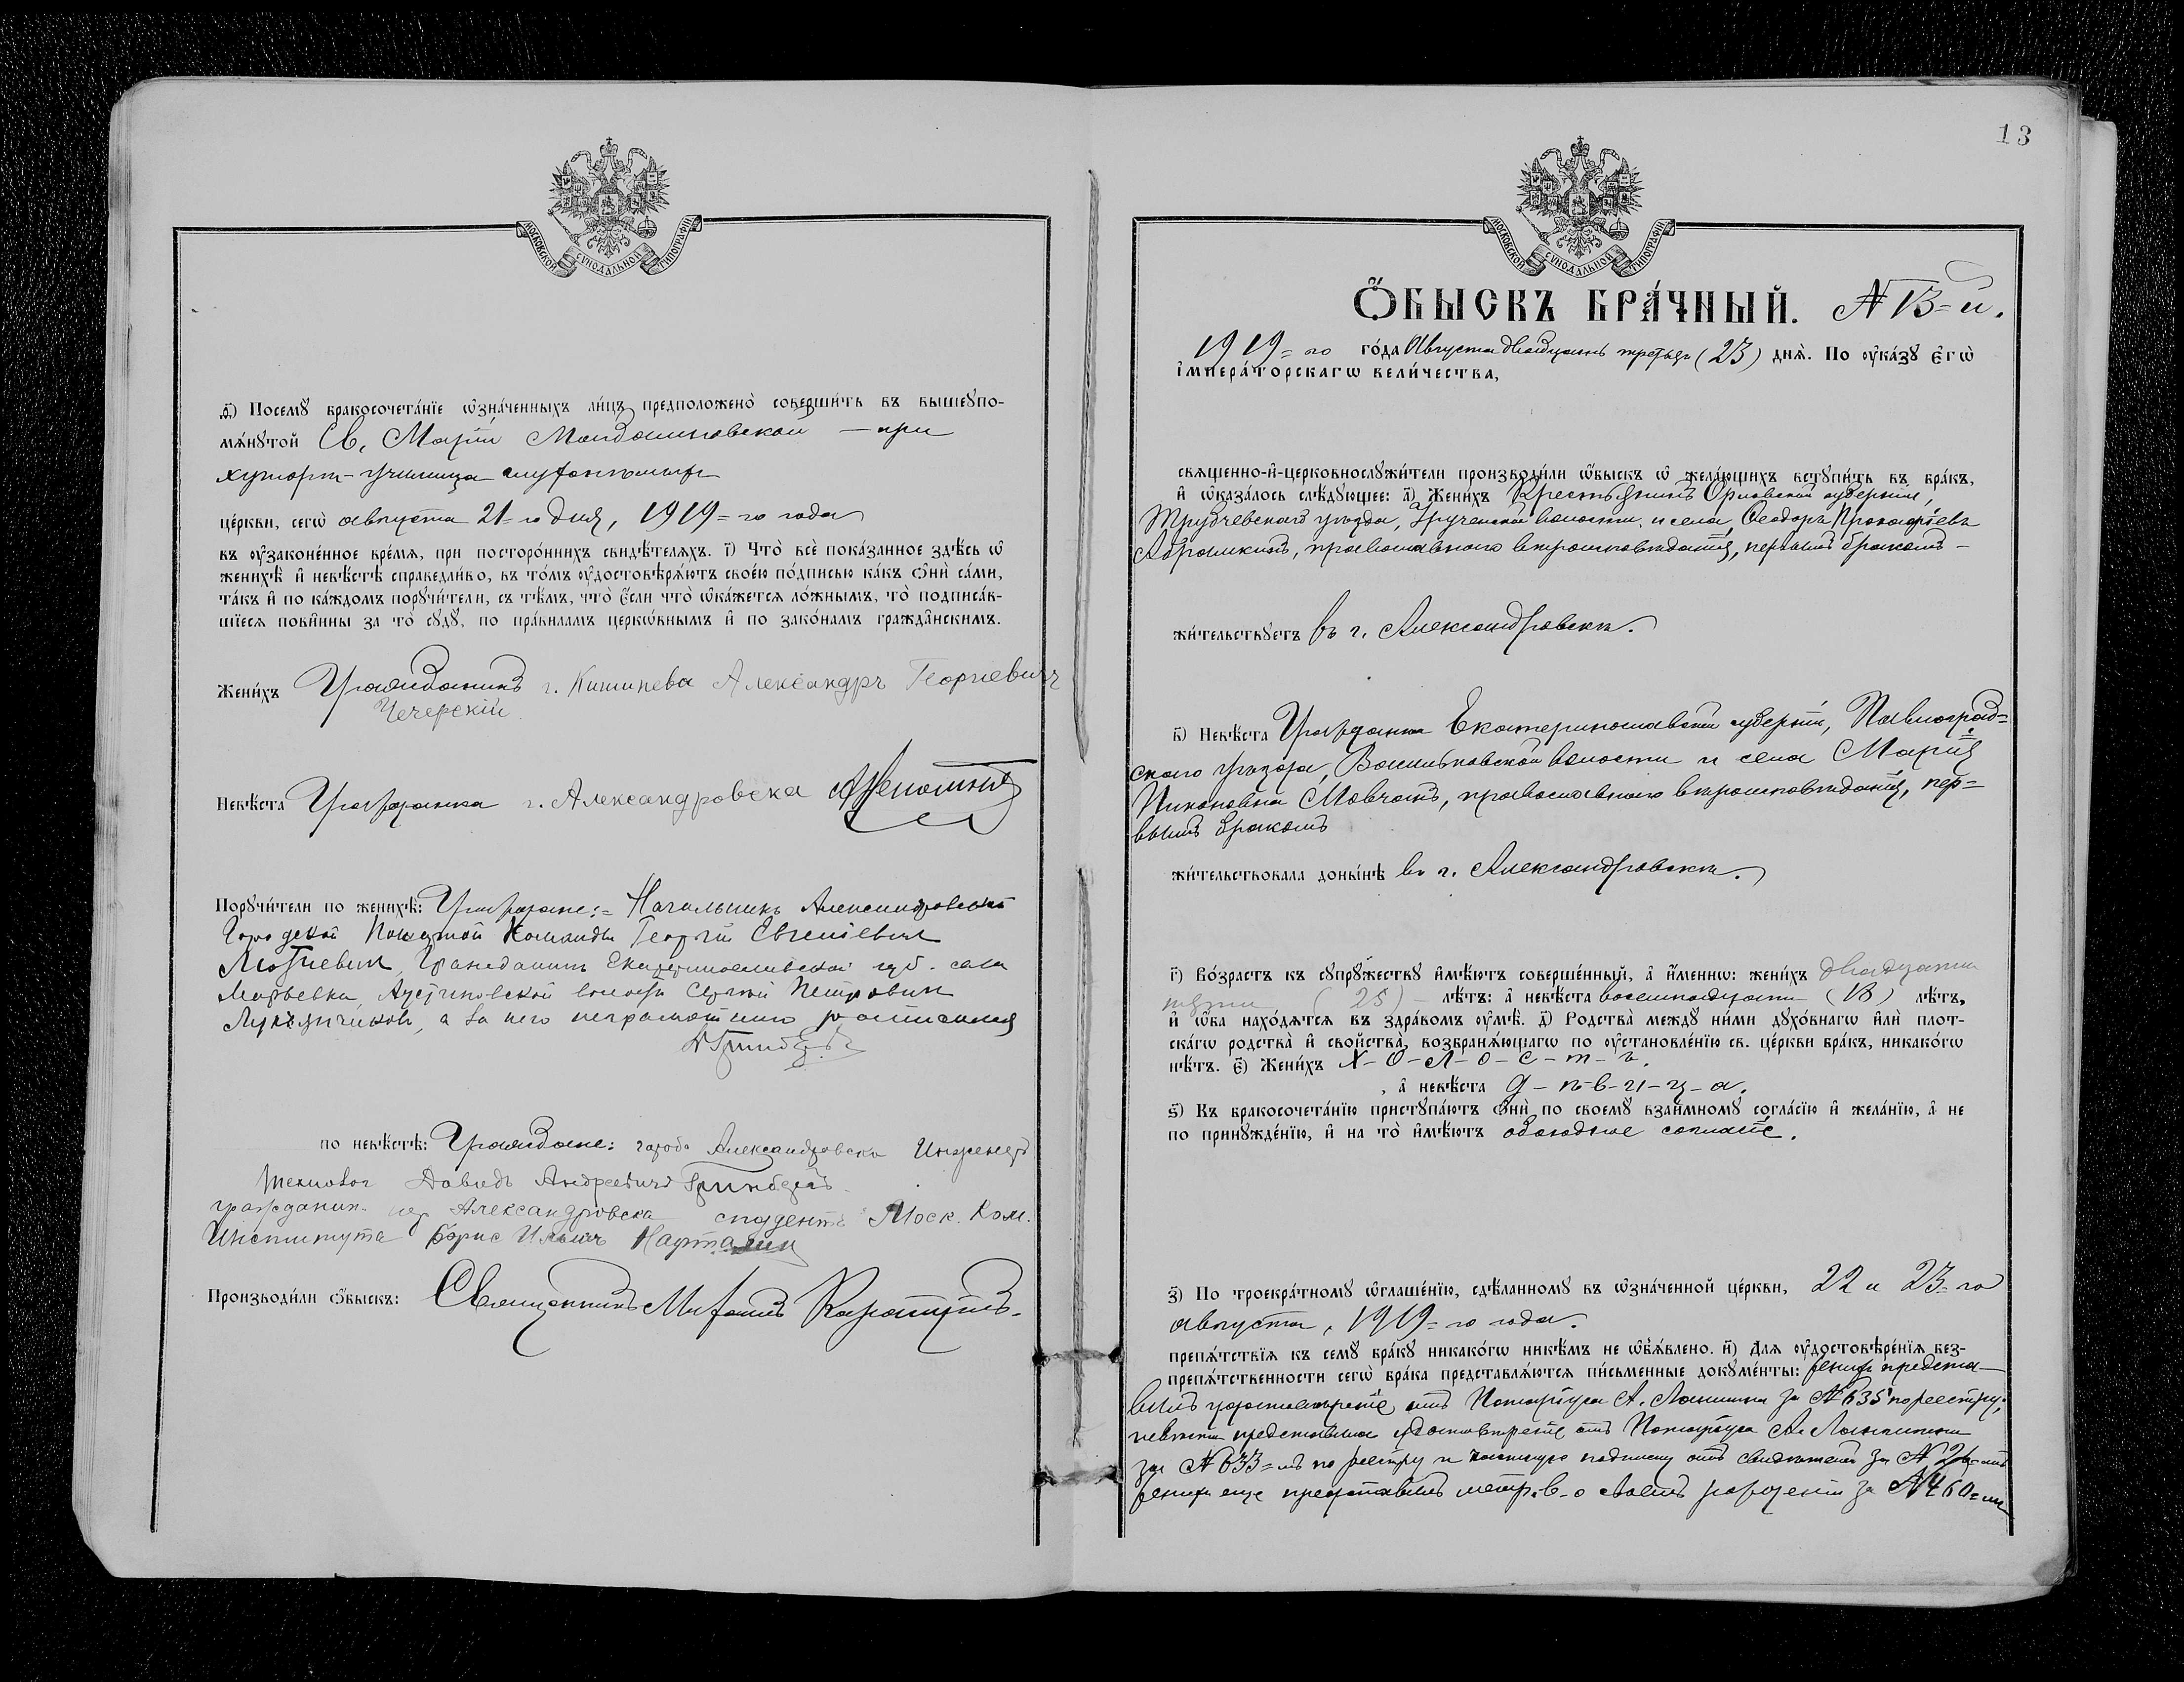 МОСКОВСКОЙ СѴНОДАЛЬНОЙ ТИПОГРАФІИ
ѳ҃) Посемꙋ̀ бракосочета́нїе ѡ҆зна́ченныхъ ли́цъ предположено̀ соверши́ть въ вышеꙋпо-
мѧ́нꙋтой Св. Маріи Магдалиновской — при
училища
це́ркви, сегѡ̀ августа 21=го дня, 1919=го года
въ ᲂу҆зако́ненное вре́мѧ, при посторо́ннихъ свидѣ́телѧхъ. і҃) Что̀ всѐ пока́занное здѣ́сь ѡ҆
женихѣ̀ и҆ невѣ́стѣ справедли́во, въ то́мъ ᲂу҆достовѣрѧ́ютъ свое́ю по́дписью ка́къ ѻ҆нѝ са́ми,
та́къ и҆ по ка́ждомъ порꙋчи́тели, съ тѣ́мъ, что̀ є҆́сли что̀ ѡ҆ка́жетсѧ ло́жнымъ, то̀ подписа́в-
шїесѧ пови́нны за то̀ сꙋдꙋ̀, по пра́виламъ церкѡ́внымъ и҆ по зако́намъ гражда̑нскимъ.
Жени́хъ Гражданинъ г. Кишинева Александръ Георгиевичъ
Чечерскій
Невѣ́ста Гражданка г. Александровска
Порꙋчи́тели по женихѣ̀: Граждане:= Начальникъ Александровской
Городской Команды Георгій Евгеніевичъ
Гражданинъ Екатеринославской губ. села
волости Сергій Петровичъ
а за него неграмотнаго росписался
по невѣ́стѣ: Граждане: города Александровска Инженеръ
Технолог Давидъ Андреевичъ Гринбергъ
гражданин гор Александровска студентъ Моск. Ком.
Института Борис Ильич
Производи́ли ѻ҆́быскъ: Священникъ Митрофанъ
13
МОСКОВСКОЙ СѴНОДАЛЬНОЙ ТИПОГРАФІИ
Ѻ҆́БЫСКЪ БРА́ЧНЫЙ. № 13=й.
1919=го го́да Августа двадцать третьяго (23) днѧ̀. По ᲂу҆ка́зꙋ є҆гѡ̀
і҆мпера́торскагѡ вели́чества,
свѧщенно-и҆-церковнослꙋжи́тели производи́ли ѻ҆́быскъ ѡ҆ жела́ющихъ встꙋпи́ть въ бра́къ,
и҆ ѡ҆каза́лось слѣ́дꙋющее: а҃) Жени́хъ Крестьянинъ Орловской губерніи,
Трубчевскаго уѣзда, волости и села, Ѳеодоръ Прокофіевъ
Абрамкинъ, православнаго вѣроисповѣданія, первымъ бракомъ –
жи́тельствꙋетъ въ г. Александровскѣ.
в҃) Невѣ́ста Гражданка Екатеринославской губерніи, Павлоград=
скаго уѣзда, Васильковской волости и села Марія
Никоновна Мовчанъ, православнаго вѣроисповѣданія, пер=
вымъ бракомъ
жи́тельствовала доны́нѣ въ г. Александровскѣ.
г҃) Во́зрастъ къ сꙋпрꙋ́жествꙋ и҆мѣ́ютъ соверше́нный, а҆ и҆́меннѡ: жени́хъ двадцати
(25) – лѣ́тъ: а҆ невѣ́ста восемнадцати (18) лѣ́тъ,
и҆ ѻ҆́ба нахо́дѧтсѧ въ здра́вомъ ᲂу҆мѣ̀. д҃) Родства̀ междꙋ̀ ни́ми дꙋхо́внагѡ и҆лѝ плот-
ска́гѡ родства̀ и҆ сво́йства̀, возбранѧ́ющагѡ по ᲂу҆становле́нїю св. це́ркви бра́къ, никако́гѡ
нѣ́тъ. є҃) Жени́хъ Х-о-л-о-с-т-ъ.
, а҆ невѣ́ста д-ѣ-в-и-ц-а.
ѕ҃) Къ бракосочета́нїю пристꙋпа́ютъ ѻ҆нѝ по своемꙋ̀ взаи́мномꙋ согла́сїю и҆ жела́нїю, а҆ не
по принꙋжде́нїю, и҆ на то̀ и҆мѣ́ютъ обоюдное согласіе.
з҃) По троекра́тномꙋ ѡ҆глаше́нїю, сдѣ́ланномꙋ въ ѡ҆зна́ченной це́ркви, 22 и 23=го
августа, 1919=го года.
препѧ́тствїѧ къ семꙋ̀ бра́кꙋ никако́гѡ никѣ́мъ не ѡ҆б̾ѧ́влено. и҃) Длѧ ᲂу҆достовѣре́нїѧ без-
препѧ́тственности сегѡ̀ бра́ка представлѧ́ютсѧ пи́сьменные докꙋме́нты: женихъ предста-
вилъ удостовѣреніе отъ Нотаріуса А. за № 635 по реестру,
невѣста представила удостовѣреніе отъ Нотаріуса А.
за № 633=мъ по реестру и подписку отъ свидѣтелей за №
женихъ еще представилъ метр. в. о своемъ рожденіи за № 460=мъ